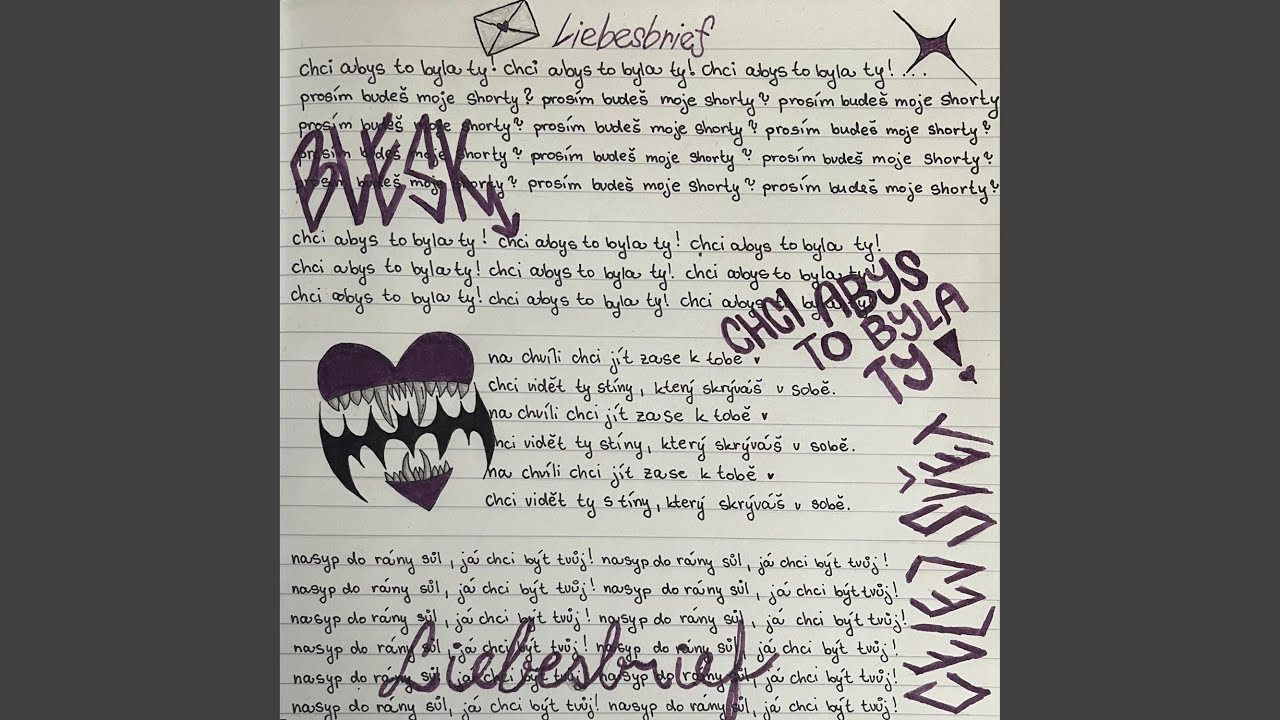 Liebesbrief
chci abys to byla ty! chci abys to byla ty! chci abys to byla ty!...
prosím budeš moje shorty? prosím budeš moje shorty? prosím budeš moje shorty
prosím budeš moje shorty? prosím budeš moje shorty? prosím budeš moje shorty?
prosím budeš moje shorty? prosím budeš moje shorty? prosím budeš moje shorty?
prosím budeš moje shorty? prosím budeš moje shorty? prosím budeš moje shorty?
BLESK
chci abys to byla ty! chci abys to byla ty! chci abys to byla ty!
chci abys to byla ty! chci abys to byla ty! chci abys to byla ty!
chci abys to byla ty! chci abys to byla ty! chci abys to byla ty!
CHCI ABYS
TO BYLA
TY!
na chvíli chci jít zase k tobě ♥
chci vidět ty stíny, který skrýváš v sobě.
na chvíli chci jít zase k tobě ♥
chci vidět ty stíny, který skrýváš v sobě.
na chvíli chci jít zase k tobě ♥
chci vidět ty stíny, který skrýváš v sobě.
CVLEJ SVĚT
nasyp do rány sůl, já chci být tvůj! nasyp do rány sůl, já chci být tvůj!
nasyp do rány sůl, já chci být tvůj! nasyp do rány sůl, já chci být tvůj!
nasyp do rány sůl, já chci být tvůj! nasyp do rány sůl, já chci být tvůj!
nasyp do rány sůl, já chci být tvůj! nasyp do rány sůl, já chci být tvůj!
nasyp do rány sůl, já chci být tvůj! nasyp do rány sůl, já chci být tvůj!
nasyp do rány sůl, já chci být tvůj! nasyp do rány sůl, já chci být tvůj!
Liebesbrief